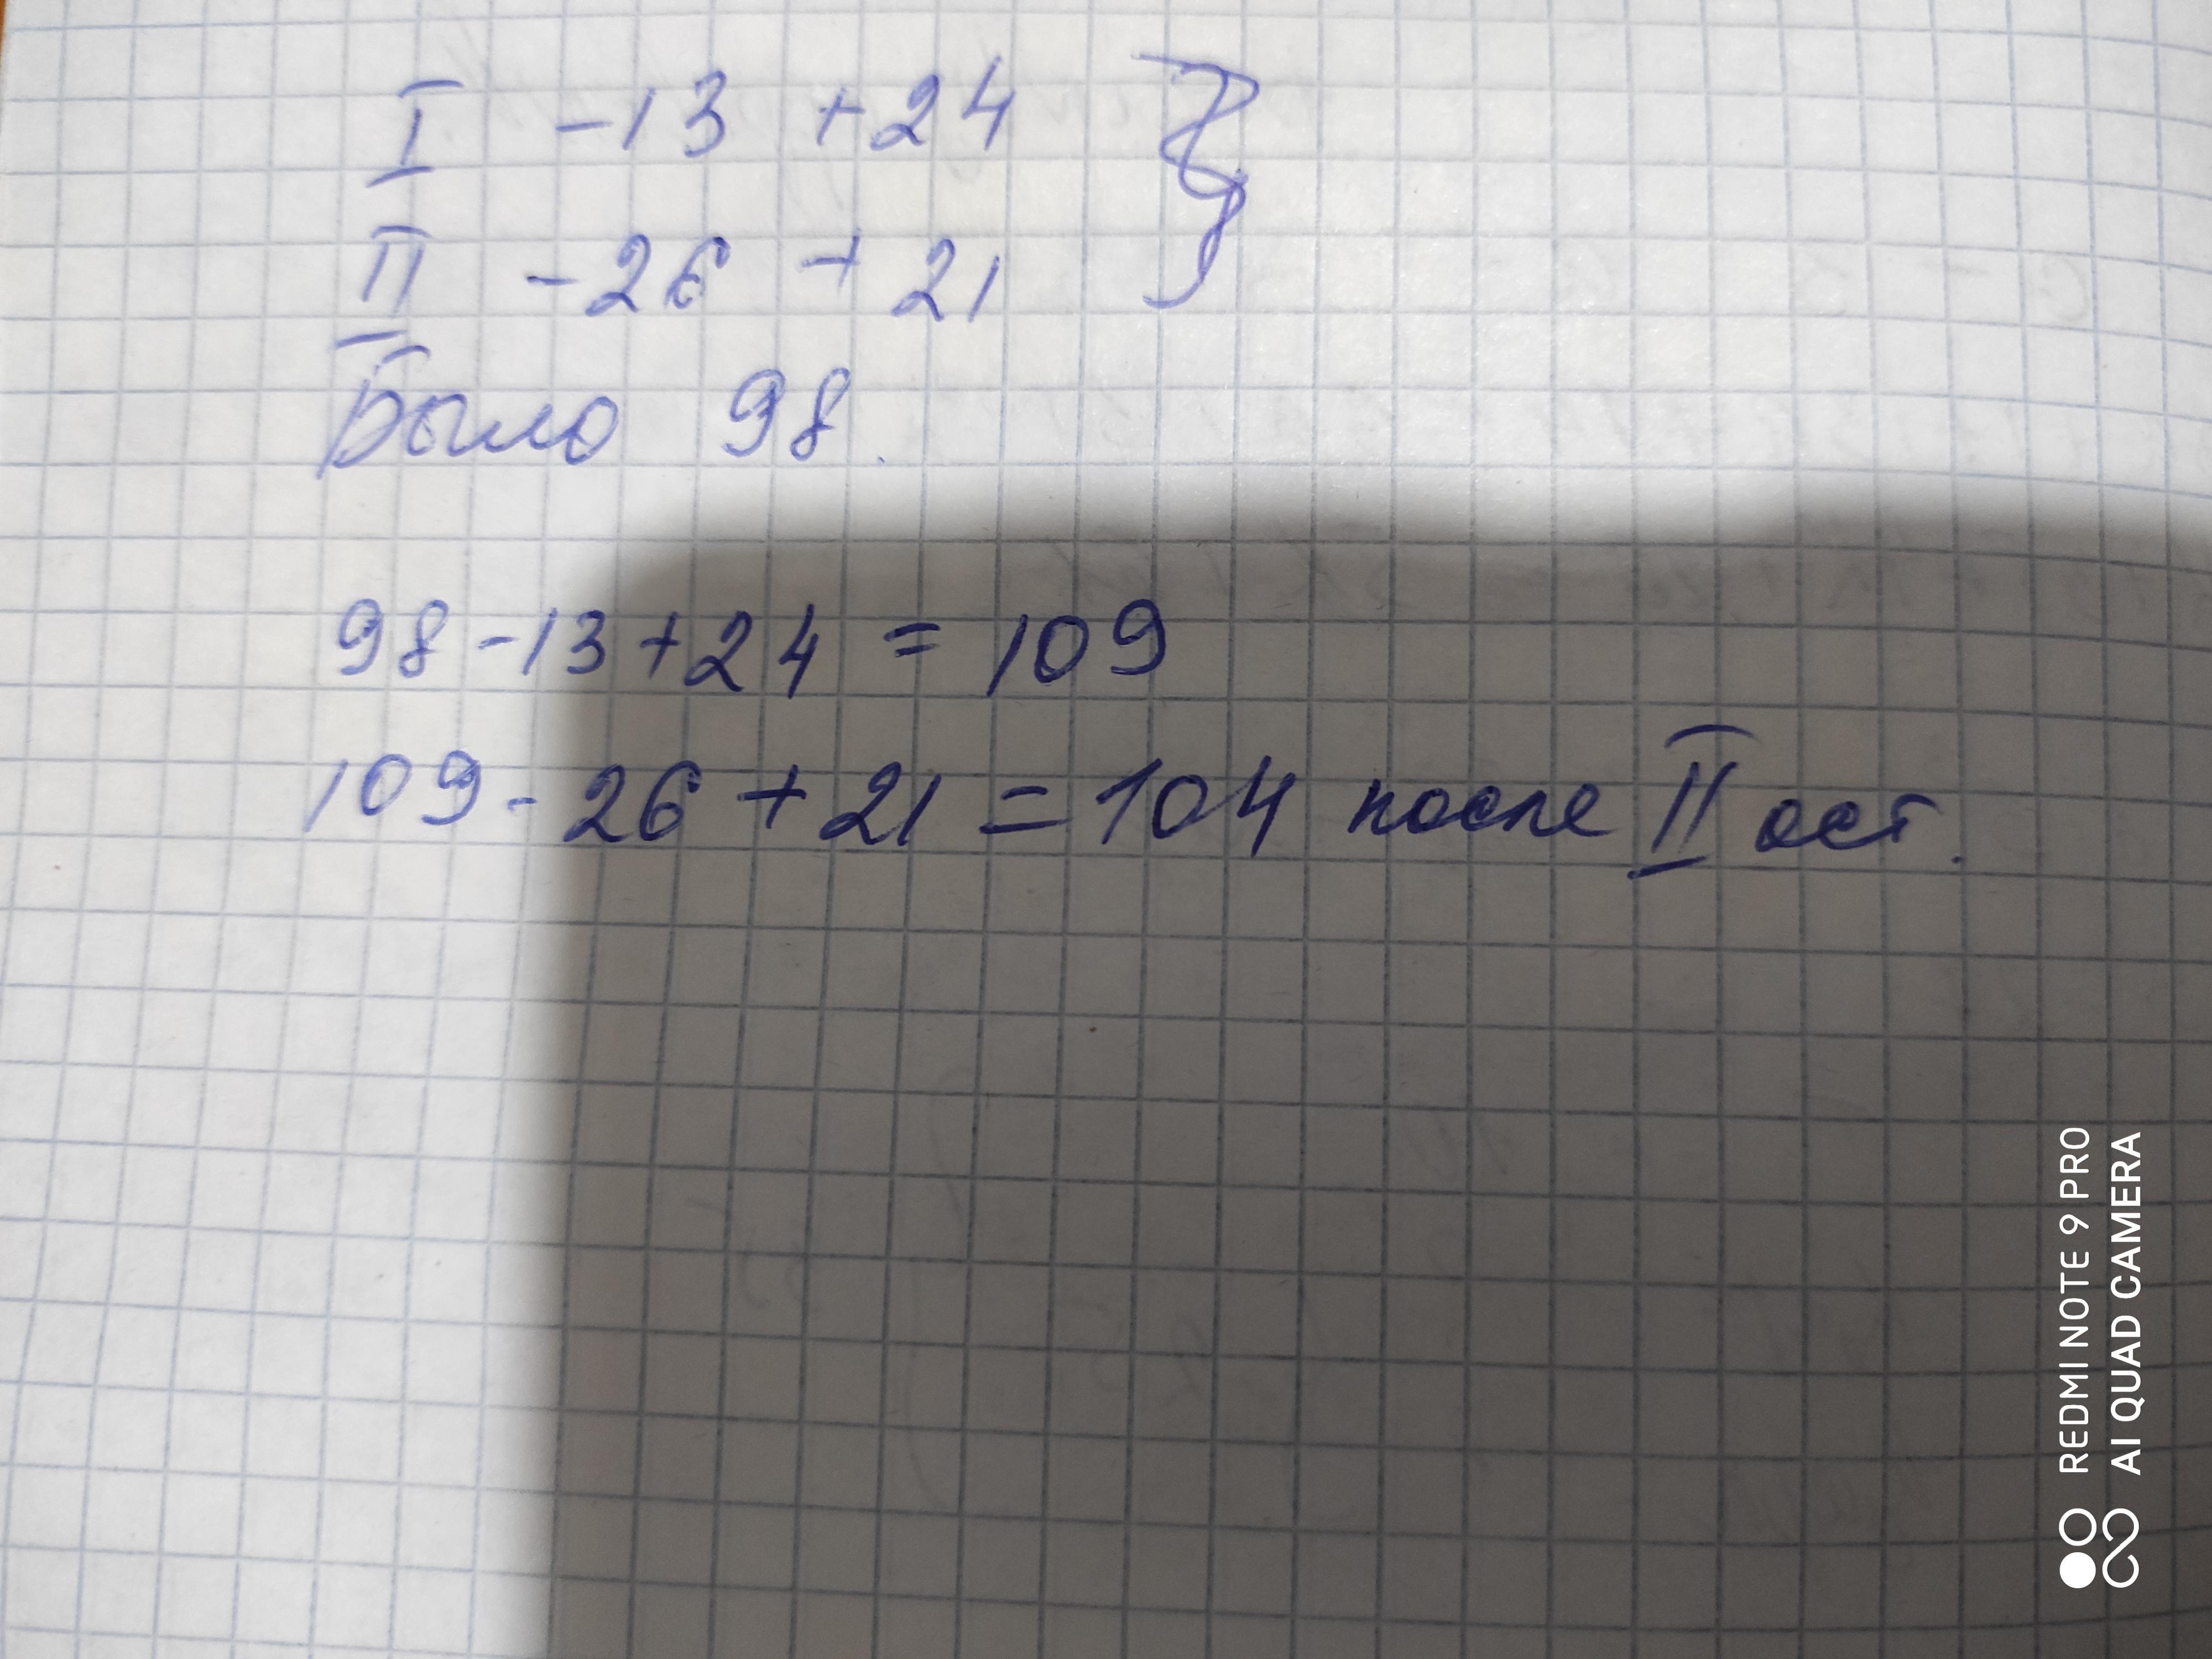 I -13 +24
II -26 +21
Было 98.
98-13+24 = 109
109-26+21=104 после II ост.
REDMI NOTE 9 PRO
AI QUAD CAMERA